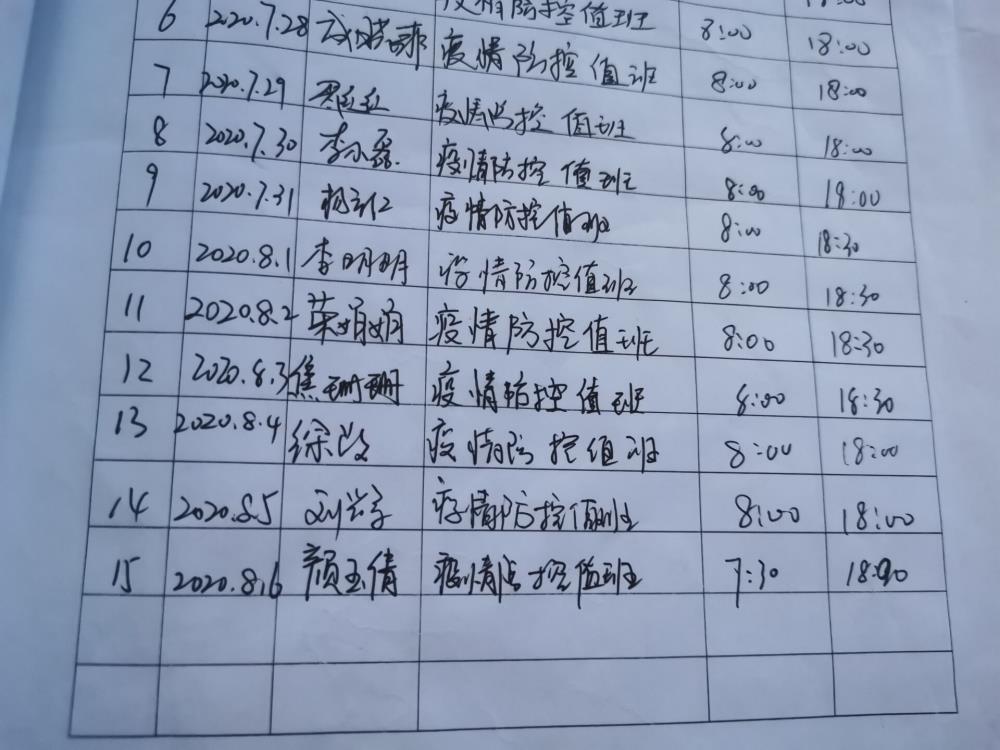 疫情防控值班 8:00
6 2020.7.28 疫情防控值班 8:00 18:00
7 2020.7.29 疫情防控值班 8:00 18:00
8 2020.7.30 李小磊 疫情防控值班 8:00 18:00
9 2020.7.31 杨立仁 疫情防控值班 8:00 18:30
10 2020.8.1 李明明 疫情防控值班 8:00 18:30
11 2020.8.2 荣娟娟 疫情防控值班 8:00 18:30
12 2020.8.3 焦珊珊 疫情防控值班 8:00 18:30
13 2020.8.4 徐 疫情防控值班 8:00 18:00
14 2020.8.5 刘 疫情防控值班 8:00 18:00
15 2020.8.6 颜玉倩 疫情防控值班 7:30 18:00